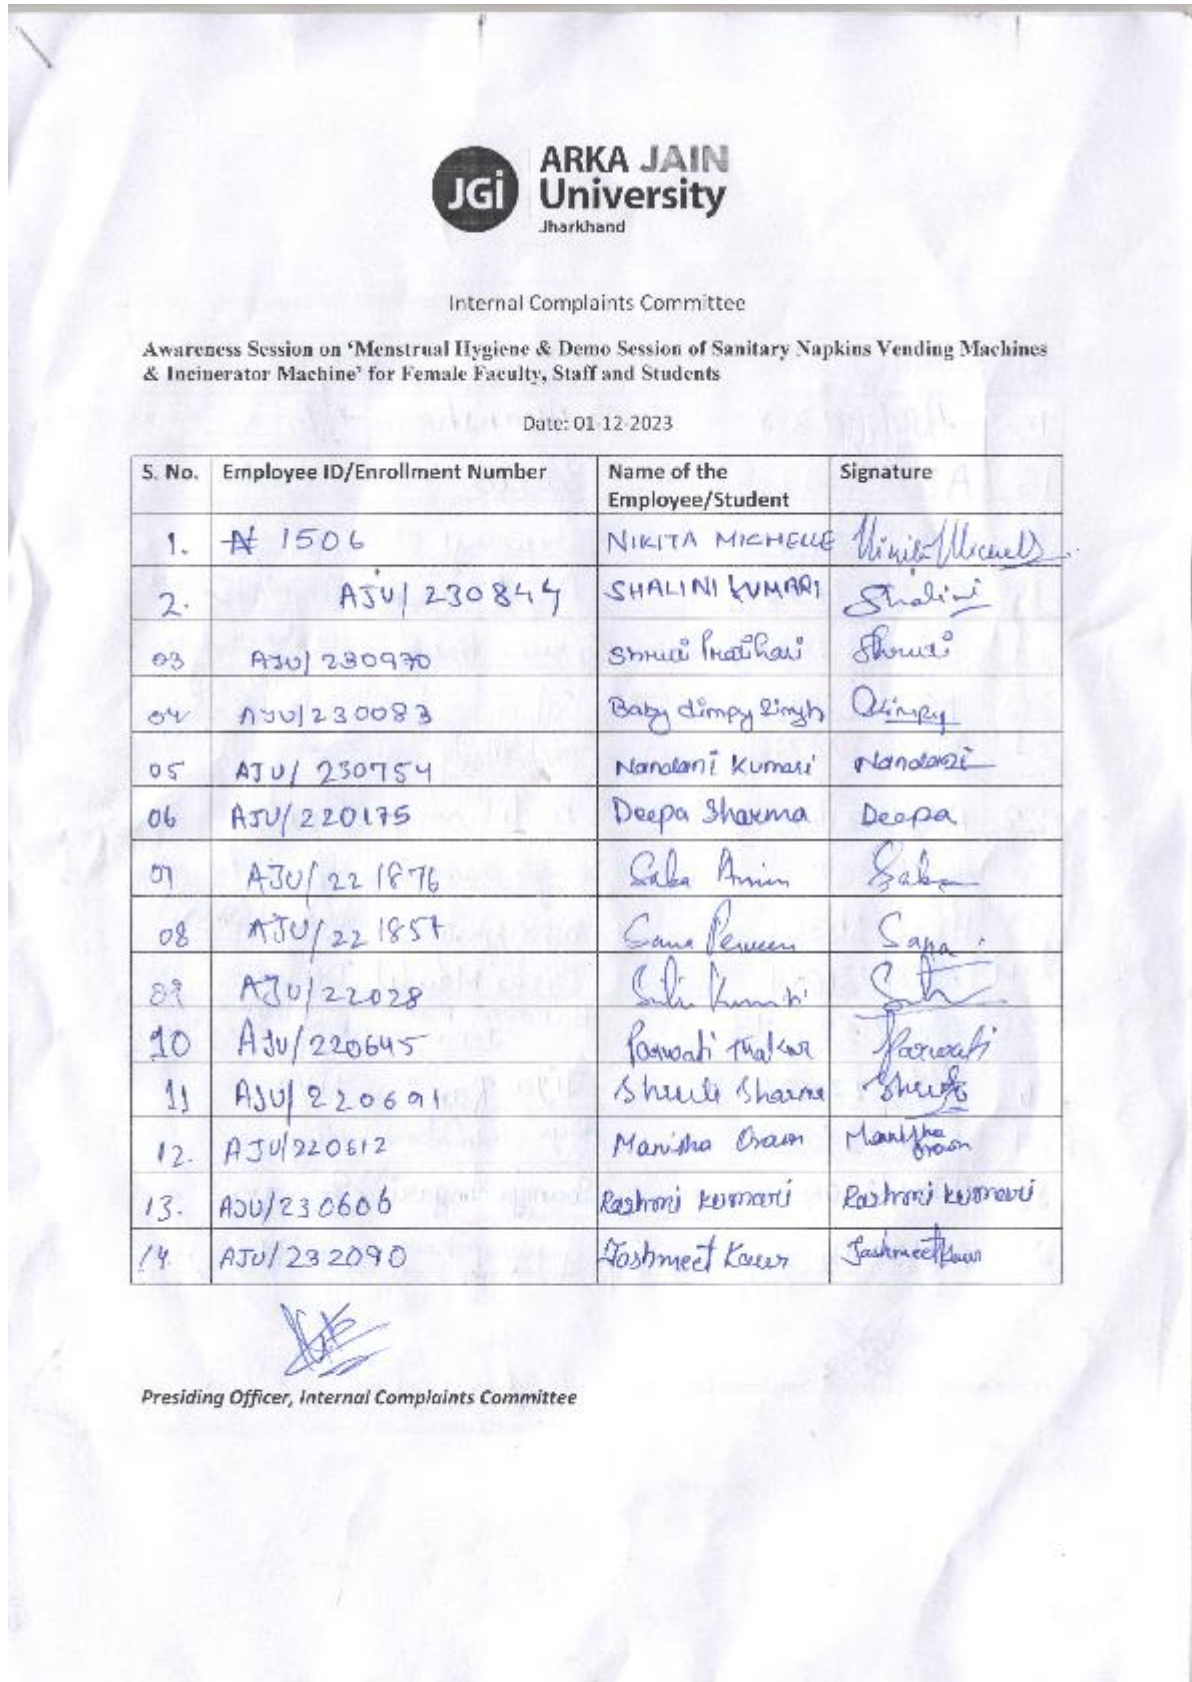 JGi
ARKA JAIN
University
Jharkhand
Internal Complaints Committee
Awareness Session on ‘Menstrual Hygiene & Demo Session of Sanitary Napkins Vending Machines
& Incinerator Machine’ for Female Faculty, Staff and Students
Date: 01-12-2023
S. No. Employee ID/Enrollment Number Name of the Employee/Student Signature
1. 1506 NIKITA MICHELLE Nikita Michelle
2. AJU/230844 SHALINI KUMARI Shalini
03 AJU/230970 Shruti Pratihari Shruti
04 AJU/230083 Baby dimpy Singh Dimpy
05 AJU/230754 Nandani Kumari Nandani
06 AJU/220175 Deepa Sharma Deepa
07 AJU/221876 Saba Saba
08 AJU/221857 Sana Perween Sana
09 AJU/22028
10 AJU/220645 Parwati Thakur Parwati
11 AJU/220691 Sharma
12. AJU/220612 Manisha Oraon Manisha Oraon
13. AJU/230606 Rashmi Kumari Rashmi Kumari
14. AJU/232090 Jashmeet Kaur Jashmeet Kaur
Presiding Officer, Internal Complaints Committee